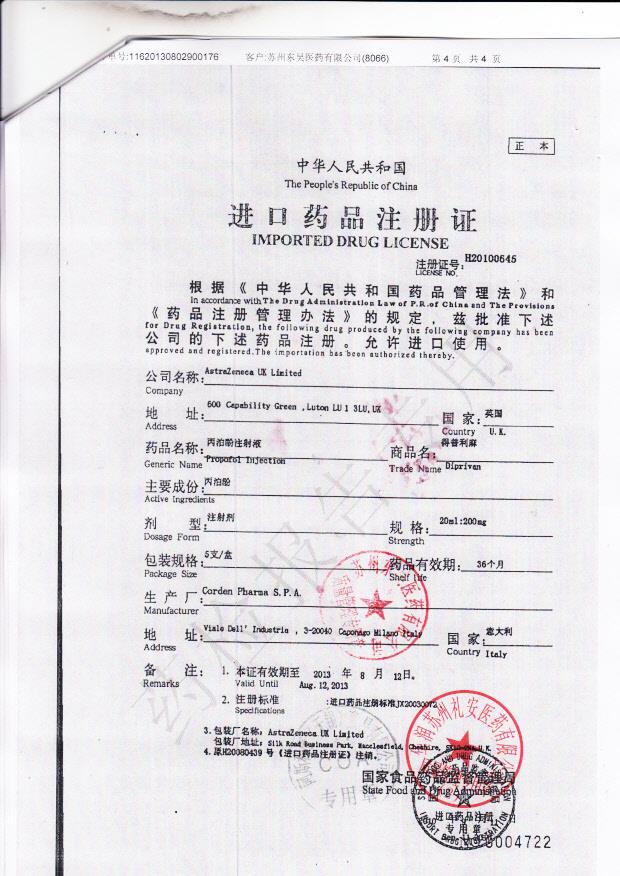 单号:11620130802900176 客户:苏州东吴医药有限公司(8066) 第 4 页 共 4 页
正 本
中华人民共和国
The People's Republic of China
进口药品注册证
IMPORTED DRUG LICENSE
注册证号: H20100645
LICENSE NO.
根据《中华人民共和国药品管理法》和
In accordance with The Drug Administration Law of P.R.of China and The Provisions
《药品注册管理办法》的规定，兹批准下述
for Drug Registration, the following drug produced by the following company has been
公司的下述药品注册。允许进口使用。
approved and registered.The importation has been authorized thereby.
公司名称: AstraZeneca UK Limited
Company
地 址: 600 Capability Green ,Luton LU1 3LU,UK 国家: 英国
Address Country U.K.
药品名称: 丙泊酚注射液 商品名: 得普利麻
Generic Name Propofol Injection Trade Name Diprivan
主要成份: 丙泊酚
Active Ingredients
剂 型: 注射剂 规格: 20ml:200mg
Dosage Form Strength
包装规格: 5支/盒 药品有效期: 36个月
Package Size Shelf life
生 产 厂: Corden Pharma S.P.A.
Manufacturer
地 址: Viale Dell' Industria , 3-20040 Caponago Milano Italy 国家: 意大利
Address Country Italy
备 注: 1. 本证有效期至 2013 年 8 月 12日。
Remarks Valid Until Aug.12,2013
2. 注册标准 :进口药品注册标准JX20030072
Specifications
3.包装厂名称: AstraZeneca UK Limited
包装厂地址: Silk Road Business Park, Macclesfield, Cheshire, U.K.
4.原H20080439 号《进口药品注册证》注销。
国家食品药品监督管理局
State Food and Drug Administration
专用章
进口药品注册
专用章
0004722
药检报告专用